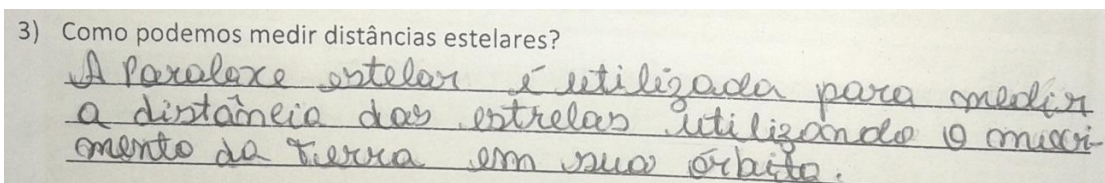 3) Como podemos medir distâncias estelares?
A Paralaxe estelar é utilizada para medir
a distância das estrelas utilizando o movi-
mento da Tierra em sua órbita.